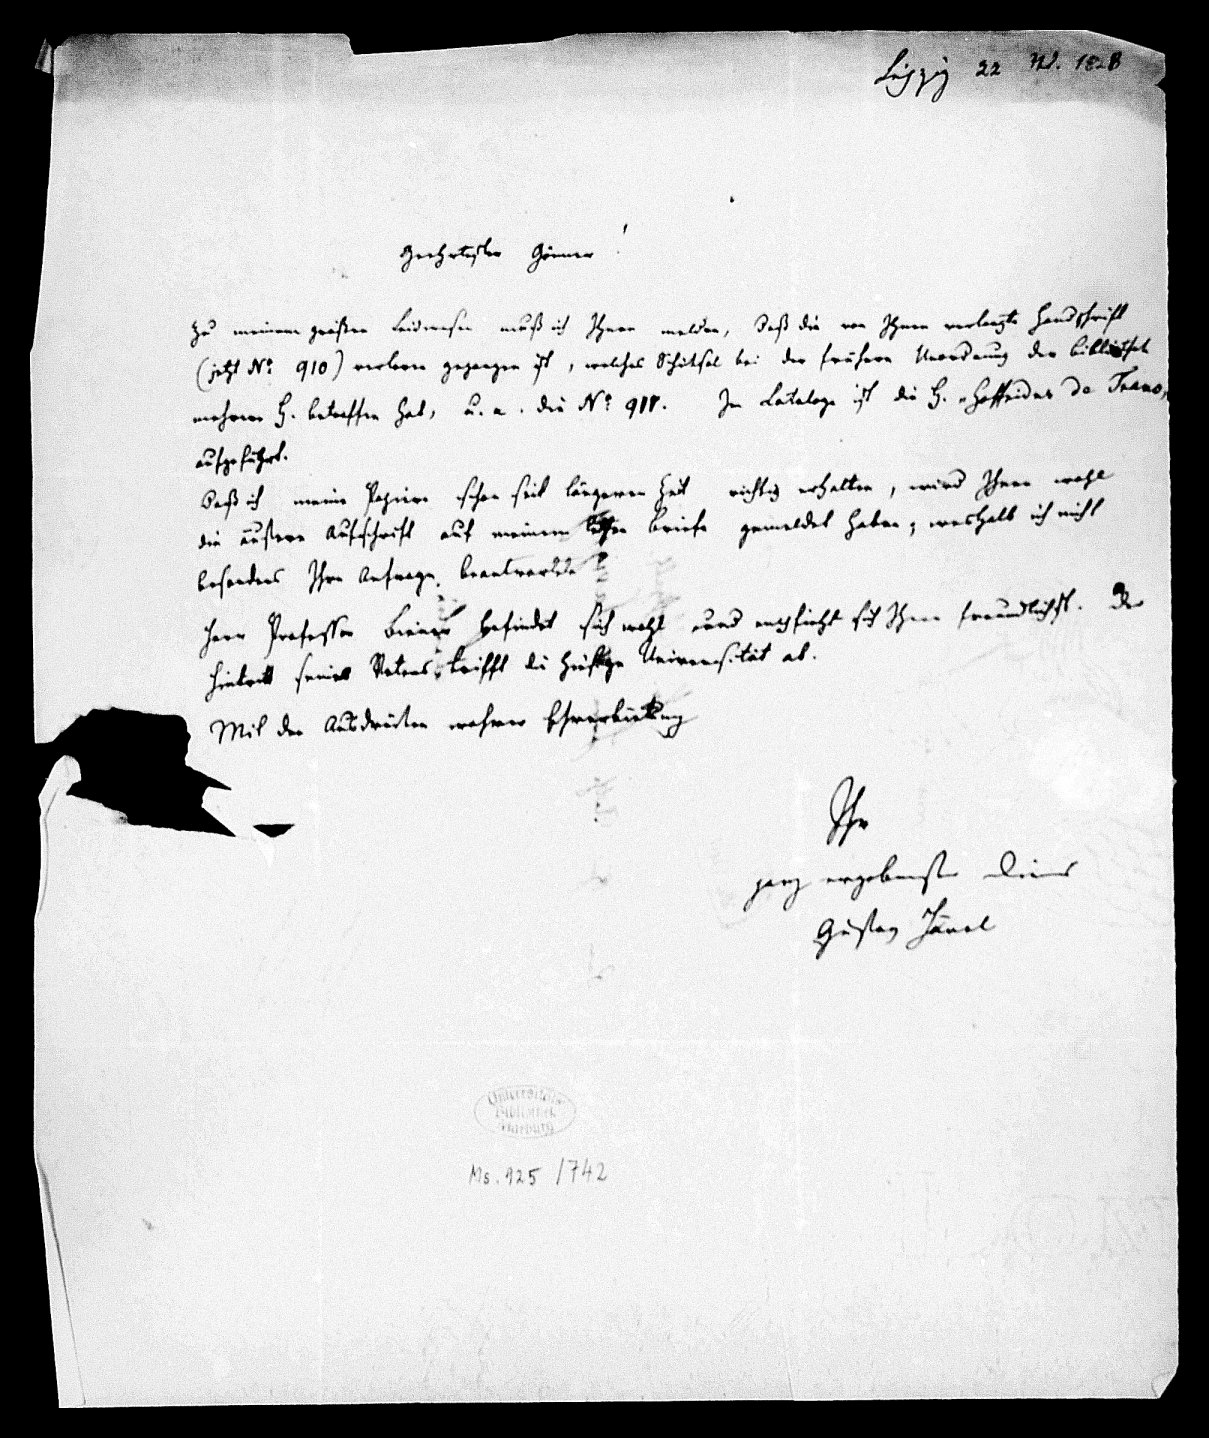 Leipzig 22 Nd. 1828
Geehrtester Gönner!
Zu meinem großen Leidwesen muß ich Ihnen melden, daß die von Ihnen verlangte Handschrift
(jetzt No. 910) verloren gegangen ist, welches Schiksal bei der frühern Unordnung der Bibliothek
mehrere H. betroffen hat, u. a. die No. 911. Im Cataloge ist die H. de Trano,
aufgeführt.
Daß ich meine Papiere schon seit längerer Zeit richtig erhalten, wird Ihnen wohl
die äußere Aufschrift auf meinem Briefe gemeldet haben, weshalb ich nicht
besonders Ihre Anfrage beantwortete.
Herr Professor Biener befindet sich wohl und empfiehlt sich Ihnen freundlichst. Der
Hintritt seines Vaters trifft die hiesige Universität ab.
Mit den Ausdrücken wahrer Ehrerbietung
Ihr
ganz ergebenster Diener
Gustav Hänel
Universitäts
Bibliothek
Marburg
Ms. 925/742